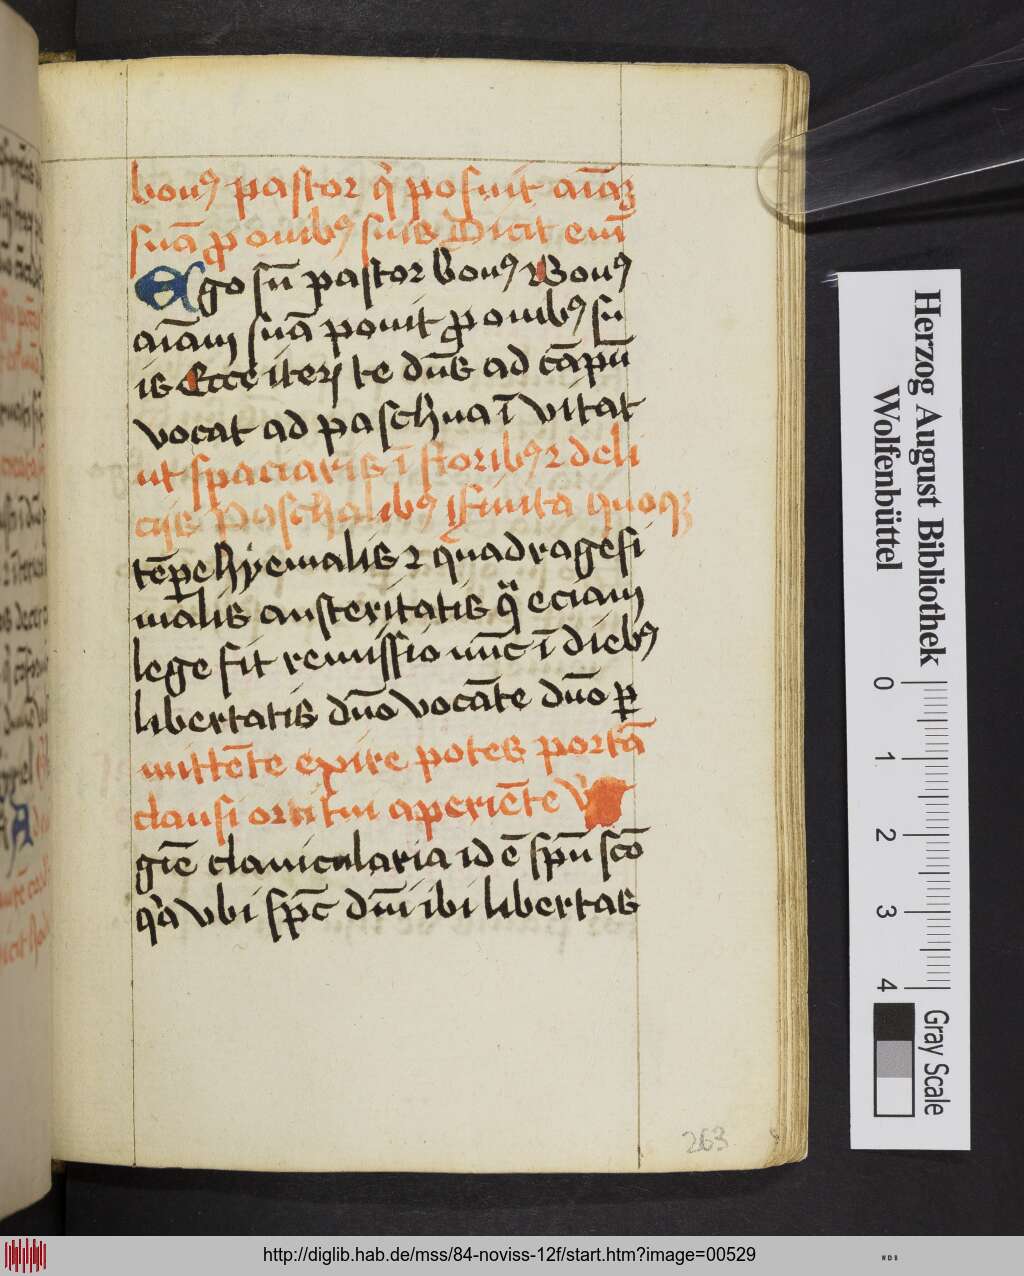 bonꝰ pastor q̇ posuit aīaꝫ
suā ꝓ ouibꝰ suis Dicit em̄
Ego sū pastor bonꝰ ⁊ Bonꝰ
aīam suā ponit ꝓ ouibꝰ su
is Ecce iteꝝ te dūs ad cāpū
vocat ad paschua ī vitat
ut spaciaris ī floribꝰ ⁊ deli
cijs paschalibꝰ ꝯfinita quoqꝫ
tēpe hyemalis ⁊ quadragesi
malis austeritatis qͣ eciam
lege fit remissio nūc ī diebꝰ
libertatis dūo vocāte dūo ꝑ
mittēte exire potes portā
clausi
aperiēte
gīe clauicularia id ē spū scō
q̇a vbi spc̄ dūi ibi libertas
263
Herzog August Bibliothek
Wolfenbüttel
0 1 2 3 4
Gray Scale
http://diglib.hab.de/mss/84-noviss-12f/start.htm?image=00529